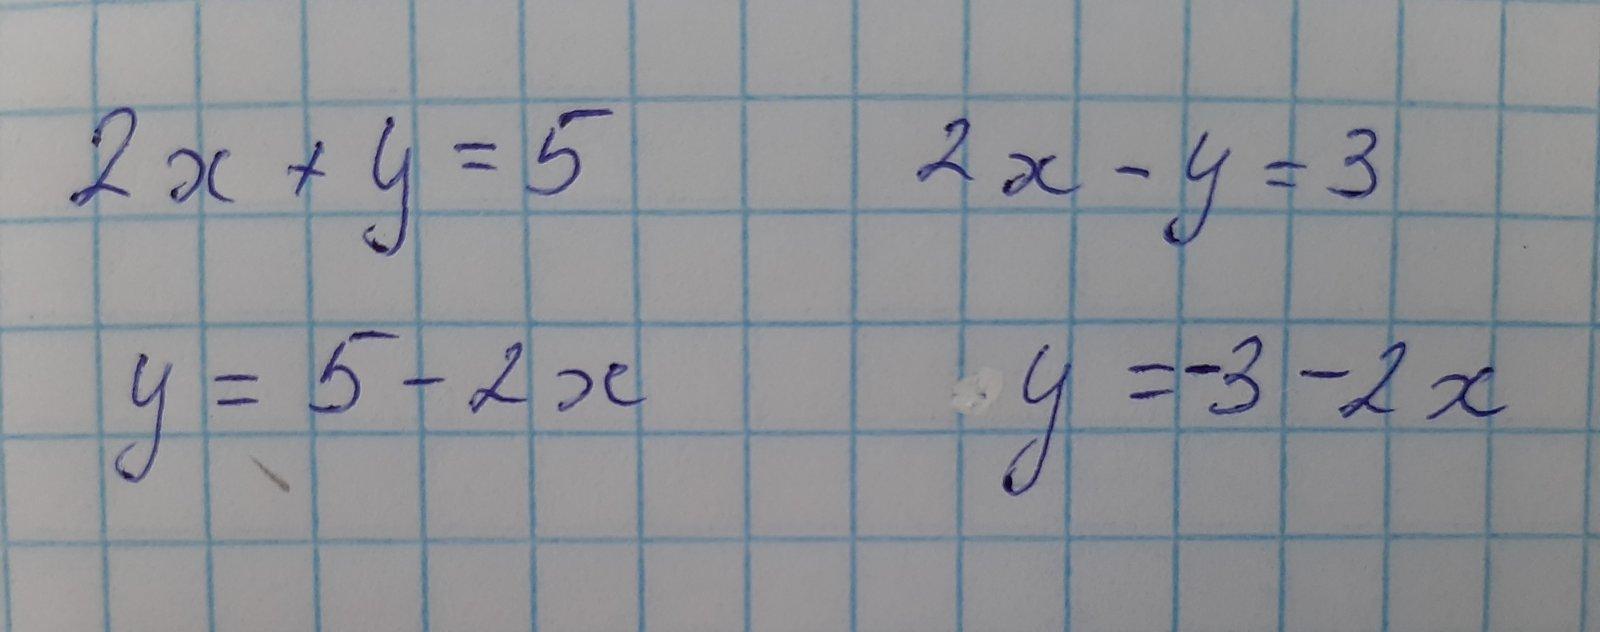 2x + y = 5    2x - y = 3
y = 5 - 2x    y = -3 - 2x